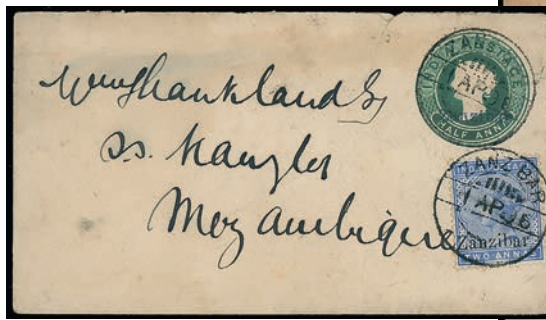 Wm Shankland Esq
s.s. Kanzler
Mozambique
ZANZIBAR
AP 16
HALF ANNA
ZANZIBAR
AP 16
Zanzibar
TWO ANNAS